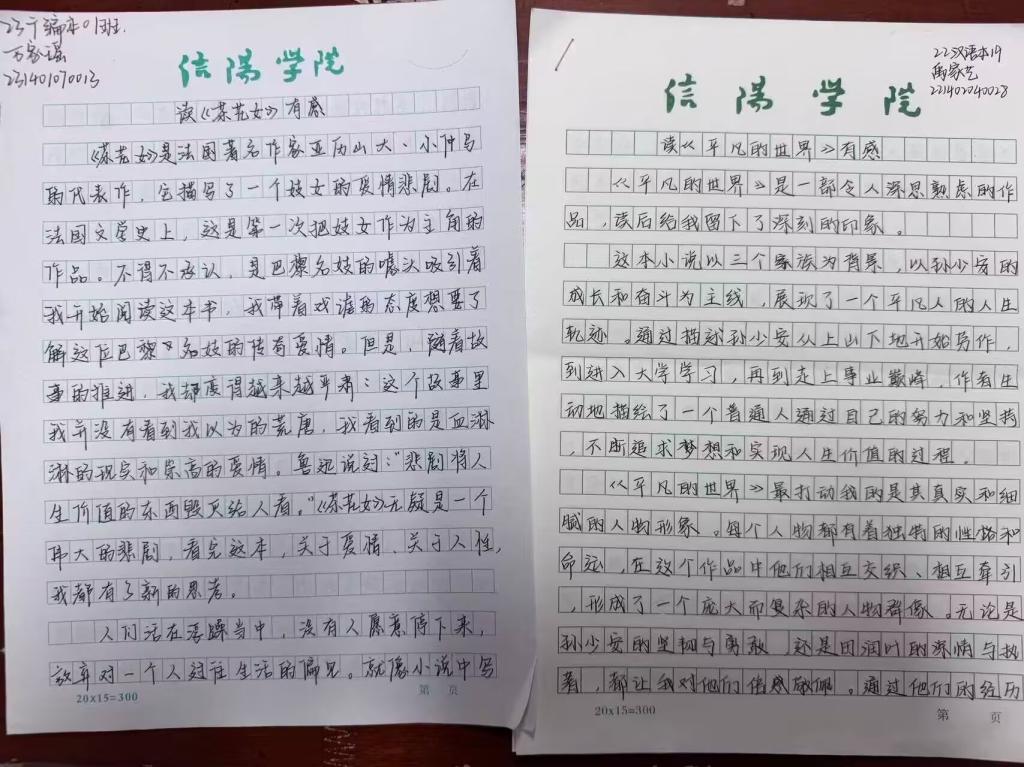 23广编本01班.
万家瑶
231401070013
信阳学院
读《茶花女》有感
《茶花女》是法国著名作家亚历山大、小仲马
的代表作，它描写了一个妓女的爱情悲剧。在
法国文学史上，这是第一次把妓女作为主角的
作品。不得不承认，是巴黎名妓的噱头吸引着
我开始阅读这本书，我带着戏谑的态度想要了
解这位巴黎名妓的传奇爱情。但是，随着故
事的推进，我却变得越来越严肃：这个故事里
我并没有看到我以为的荒唐，我看到的是血淋
淋的现实和崇高的爱情。鲁迅说过："悲剧将人
生价值的东西毁灭给人看。"《茶花女》无疑是一个
伟大的悲剧，看完这本，关于爱情、关于人性，
我都有了新的思考。
人们活在浮躁当中，没有人愿意停下来，
放弃对一个人过往生活的偏见。就像小说中写
20x15=300
第 页
22汉语本19
禹家艺
221402040028
信阳学院
读《平凡的世界》有感
《平凡的世界》是一部令人深思熟虑的作
品，读后给我留下了深刻的印象。
这本小说以三个家族为背景，以孙少安的
成长和奋斗为主线，展现了一个平凡人的人生
轨迹。通过描述孙少安从上山下地开始劳作，
到进入大学学习，再到走上事业巅峰，作者生
动地描绘了一个普通人通过自己的努力和坚持
，不断追求梦想和实现人生价值的过程。
《平凡的世界》最打动我的是其真实和细
腻的人物形象。每个人物都有着独特的性格和
命运，在这个作品中他们相互交织、相互牵引
，形成了一个庞大而复杂的人物群像。无论是
孙少安的坚韧与勇敢 还是田润叶的深情与执
着，都让我对他们倍感敬佩。通过他们的经历
20x15=300
第 页